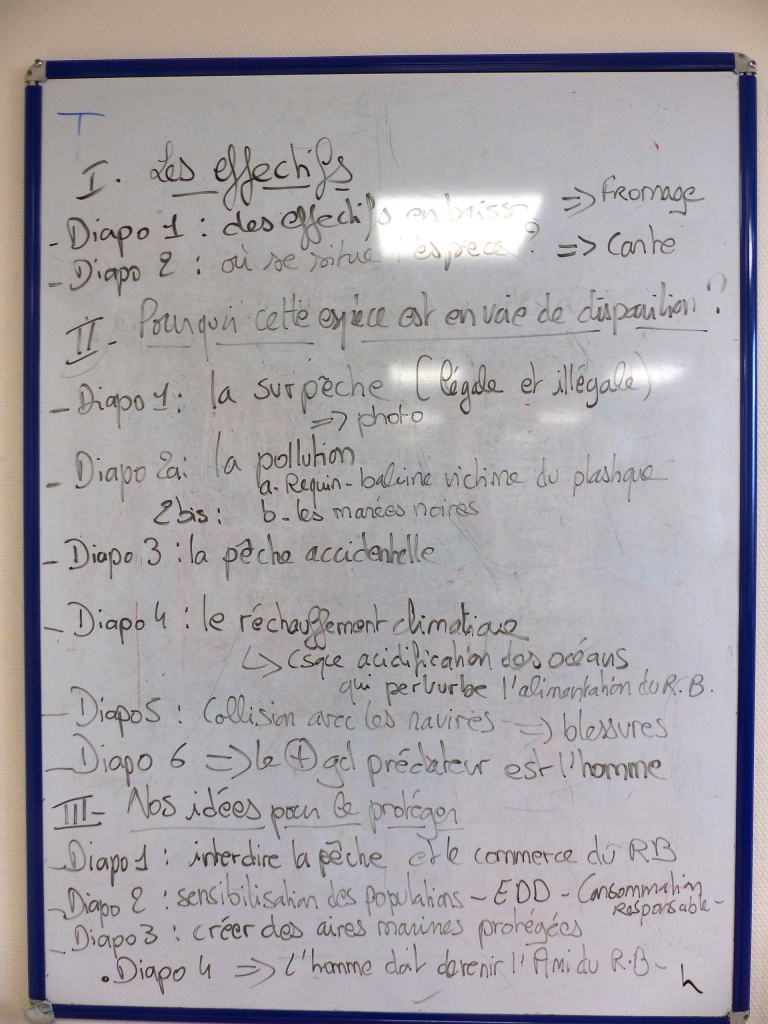 T
I. Les effectifs
- Diapo 1 : des effectifs en baisse => fromage
- Diapo 2 : où se situe l'espèce ? => Carte
II - Pourquoi cette espèce est en voie de disparition ?
- Diapo 1 : la surpêche (légale et illégale)
=> photo
- Diapo 2a : la pollution
a. Requin-baleine victime du plastique
2bis : b - les marées noires
- Diapo 3 : la pêche accidentelle
- Diapo 4 : le réchauffement climatique
↳ Csqce acidification des océans
qui perturbe l'alimentation du R.B.
- Diapo 5 : Collision avec les navires => blessures
- Diapo 6 => le ⊕ gd prédateur est l'homme
III - Nos idées pour le protéger
- Diapo 1 : interdire la pêche et le commerce du RB
- Diapo 2 : sensibilisation des populations - EDD - Consommation
Responsable -
- Diapo 3 : créer des aires marines protégées
. Diapo 4 => L'homme doit devenir l'Ami du R.B -